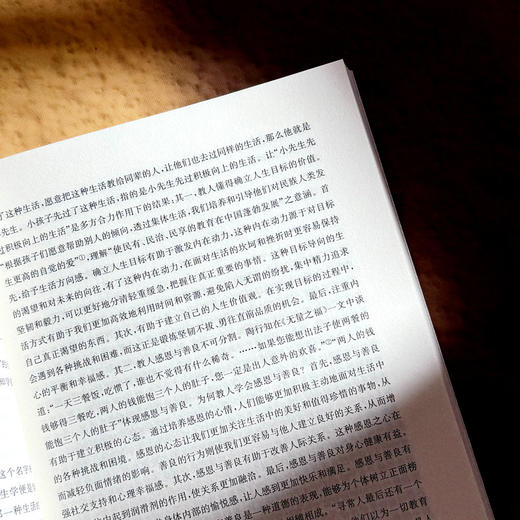 了这种生活,愿意把这种生活教给同辈的人,让他们也去过同样的生活,那么他就是
先生。小孩子先过了这种生活,指的是小先生先过积极向上的生活。让“小先生先
过积极向上的生活”是多方合力作用下的结果:其一,教人懂得确立人生目标的价值。
“根据孩子们愿意帮助别人的倾向,透过集体生活,我们培养和引导他们对民族人类发
生更高的自觉的爱”①,理解“使民有、民治、民享的教育在中国蓬勃发展”之意涵。首
先,给予生活方向感。确立人生目标有助于激发内在动力,这种内在动力源于对目标
的渴望和对未来的向往,有了这种内在动力,在面对生活的坎坷和挫折时更容易保持
坚韧和毅力,可以更好地分清轻重缓急,把握住真正重要的事情。这种目标导向的生
活方式有助于我们更加高效地利用时间和资源,避免陷入无谓的纷扰,集中精力追求
自己真正渴望的东西。其次,有助于建立自己的人生价值观。在实现目标的过程中,
会遇到各种挑战和困难,而这正是锻炼坚韧不拔、勇往直前品质的机会。最后,注重内
心的平衡和幸福感。其二,教人感恩与善良不可分割。陶行知在《无量之福》一文中谈
道:“一天三餐饭,吃惯了,谁也不觉得有什么稀奇。……如果您能想出法子使两餐的
钱够得三餐吃,两人的钱能饱三个人的肚子,您一定是出人意外的欢喜。”②“两人的钱
能饱三个人的肚子”体现感恩与善良。为何教人学会感恩与善良?首先,感恩与善良
有助于建立积极的心态。通过培养感恩的心情,人们能够更加积极主动地面对生活中
的各种挑战和困境。感恩的心态让我们更加关注生活中的美好和值得珍惜的事物,从
而减轻负面情绪的影响。善良的行为则使我们更容易与他人建立良好的关系,从而增
强社交支持和心理幸福感。其次,感恩与善良有助于改善人际关系。这种感恩之心在
内起到润滑剂的作用,使关系更加融洽。最后,感恩与善良对身心健康有益。
身体内部的愉悦感,让人感到更加快乐和满足。感恩与善良
善良是一种道德的表现,能够为个体树立正面榜
相辅相成。”寻常人最后还有一个
们以为一切教育
这个名字
生学便是
那一种生活